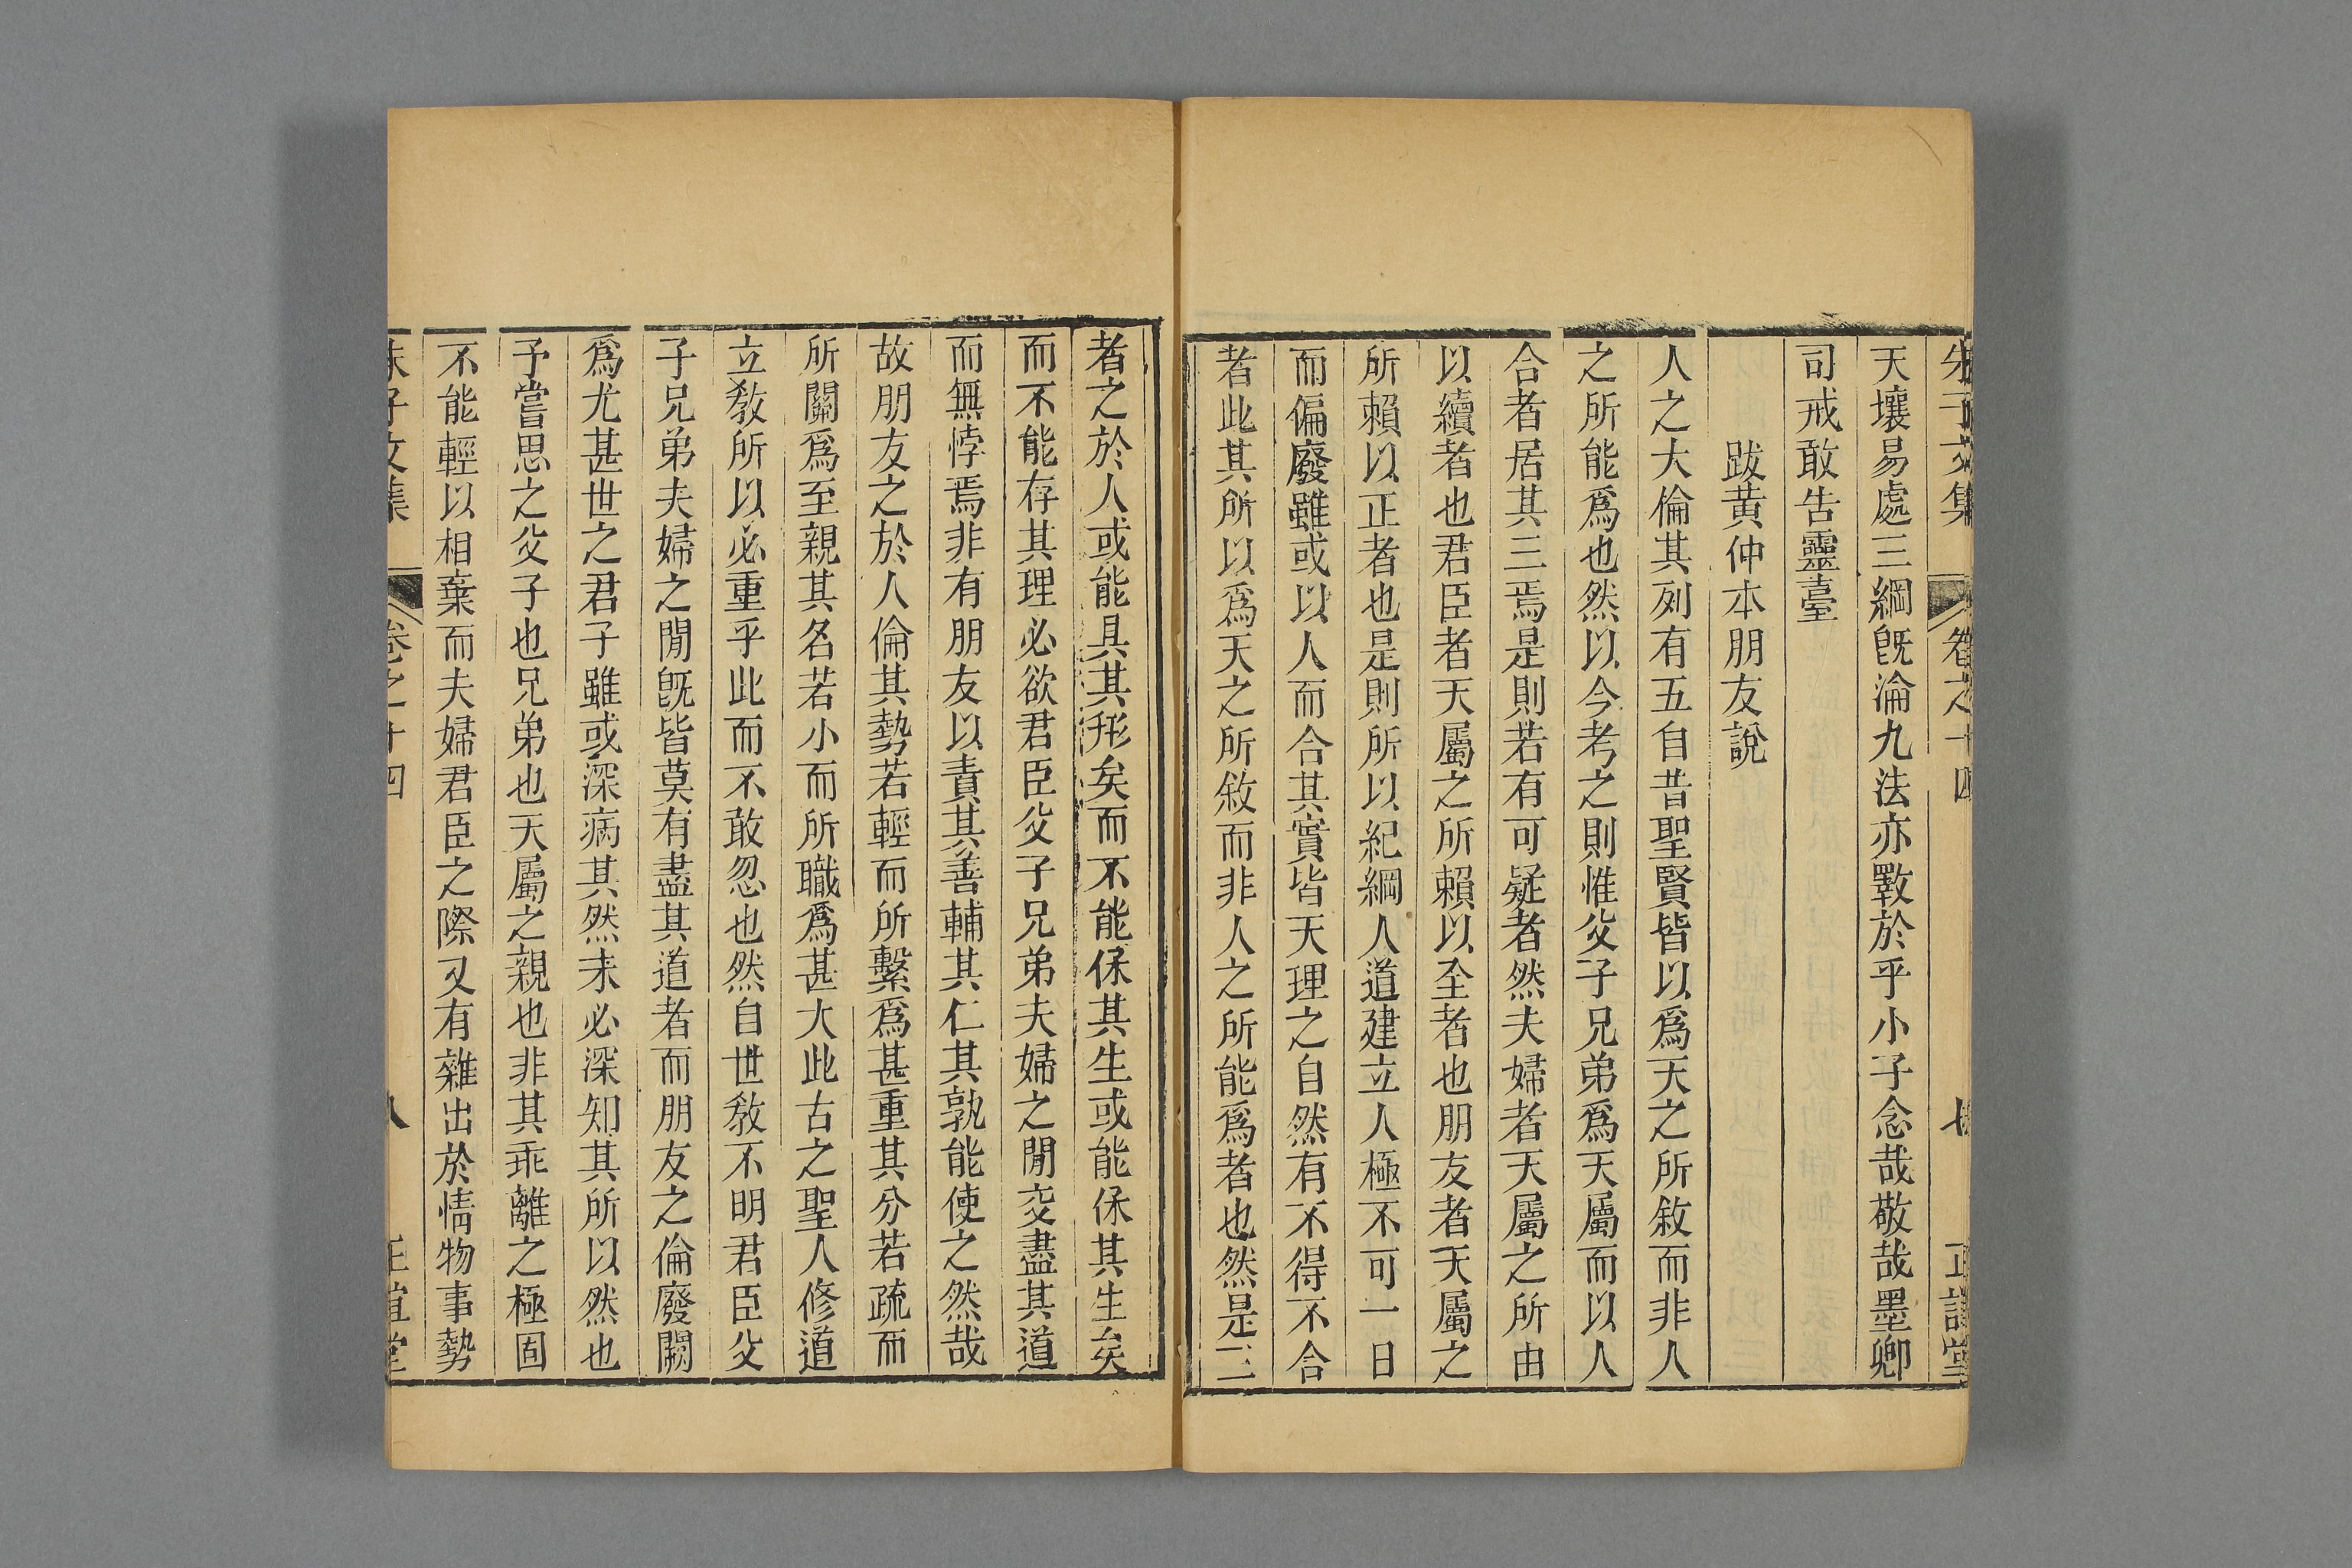 朱子文集 卷之十四 七 正誼堂
天壤易處三綱旣淪九法亦斁於乎小子念哉敬哉墨卿
司戒敢告靈臺
跋黄仲本朋友說
人之大倫其列有五自昔聖賢皆以爲天之所敘而非人
之所能爲也然以今考之則惟父子兄弟爲天屬而以人
合者居其三焉是則若有可疑者然夫婦者天屬之所由
以續者也君臣者天屬之所賴以全者也朋友者天屬之
所賴以正者也是則所以紀綱人道建立人極不可一日
而偏廢雖或以人而合其實皆天理之自然有不得不合
者此其所以爲天之所敘而非人之所能爲者也然是三
者之於人或能具其形矣而不能保其生或能保其生矣
而不能存其理必欲君臣父子兄弟夫婦之閒交盡其道
而無悖焉非有朋友以責其善輔其仁其孰能使之然哉
故朋友之於人倫其勢若輕而所繫爲甚重其分若疏而
所關爲至親其名若小而所職爲甚大此古之聖人修道
立敎所以必重乎此而不敢忽也然自世敎不明君臣父
子兄弟夫婦之閒旣皆莫有盡其道者而朋友之倫廢闕
爲尤甚世之君子雖或深病其然未必深知其所以然也
予嘗思之父子也兄弟也天屬之親也非其乖離之極固
不能輕以相棄而夫婦君臣之際又有雜出於情物事勢
朱子文集 卷之十四 八 正誼堂